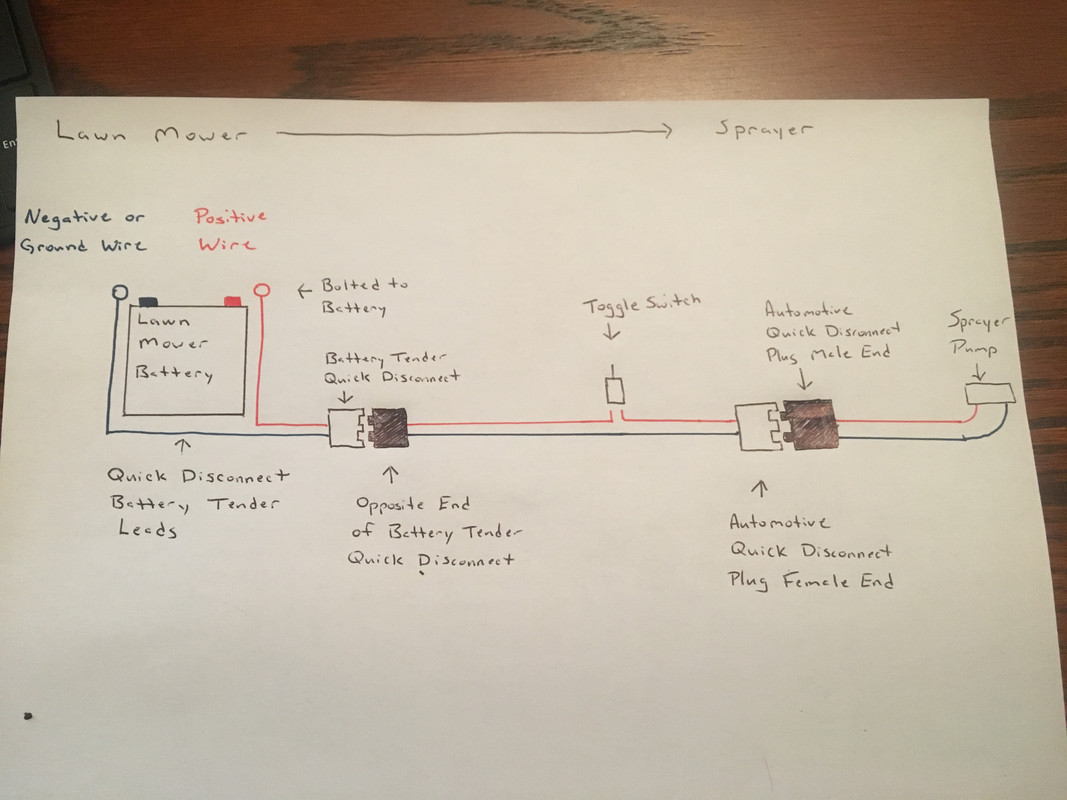 Lawn Mower
Sprayer
Negative or
Ground Wire
Positive
Wire
← Bolted to
Battery
Lawn
Mower
Battery
Battery Tender
Quick Disconnect
Toggle Switch
Automotive
Quick Disconnect
Plug Male End
Sprayer
Pump
Quick Disconnect
Battery Tender
Leads
Opposite End
of Battery Tender
Quick Disconnect
Automotive
Quick Disconnect
Plug Female End
En